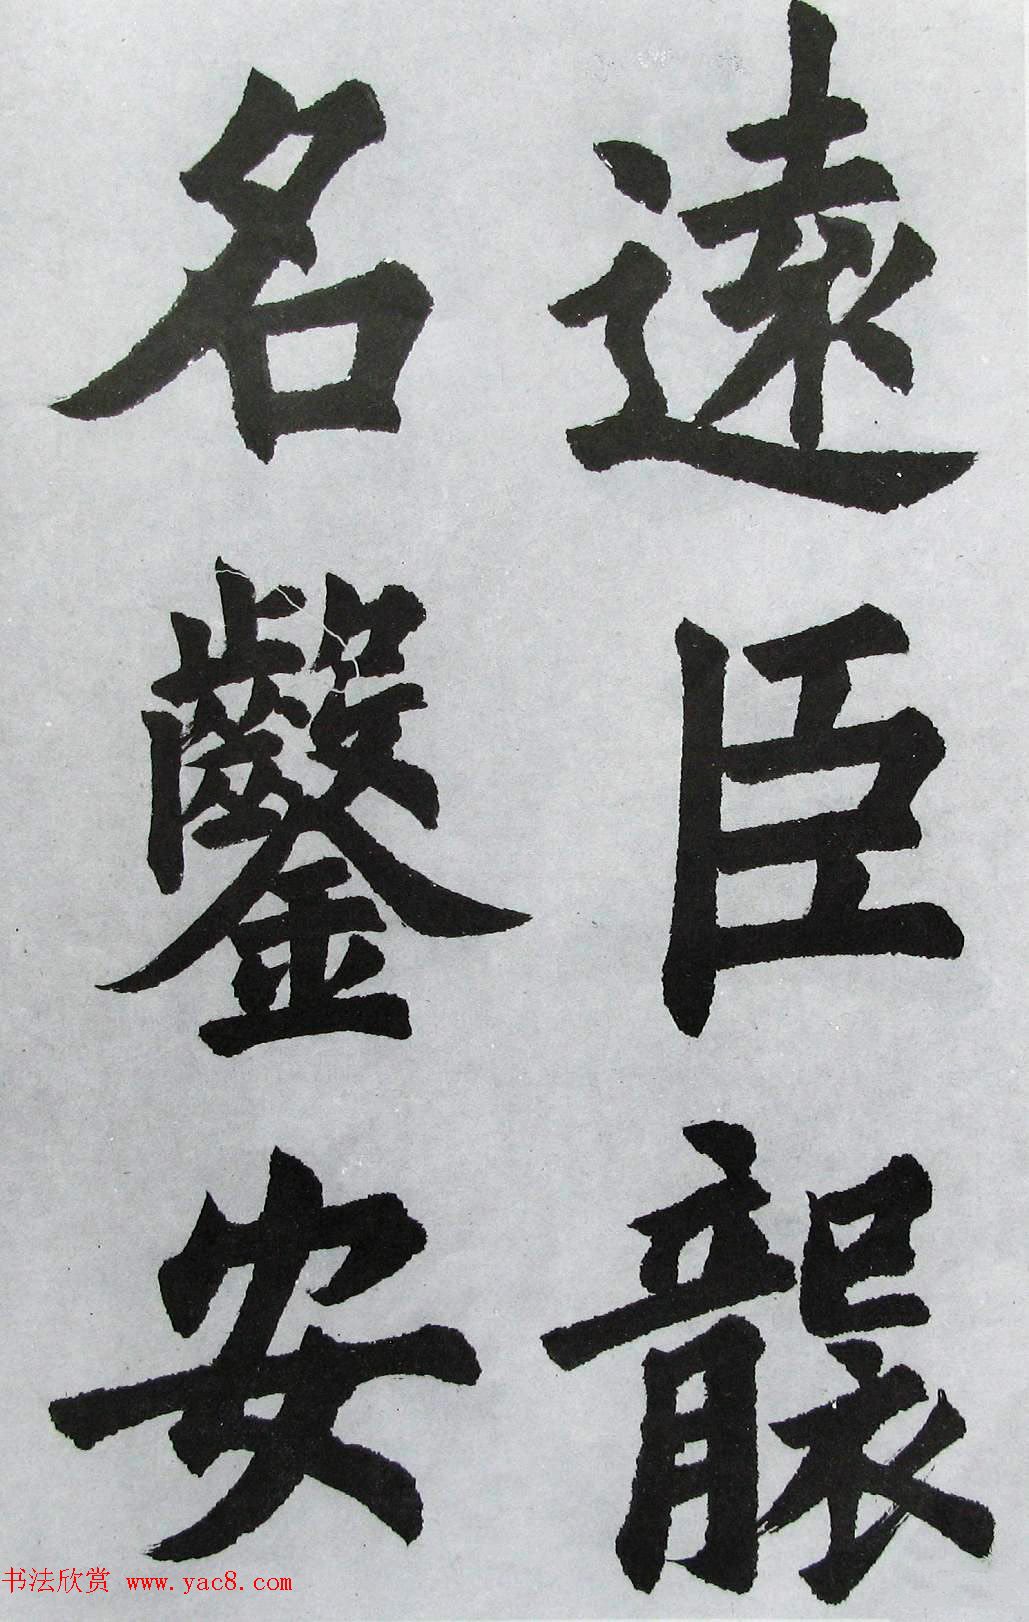 遠臣襲
名鑿安
书法欣赏 www.yac8.com